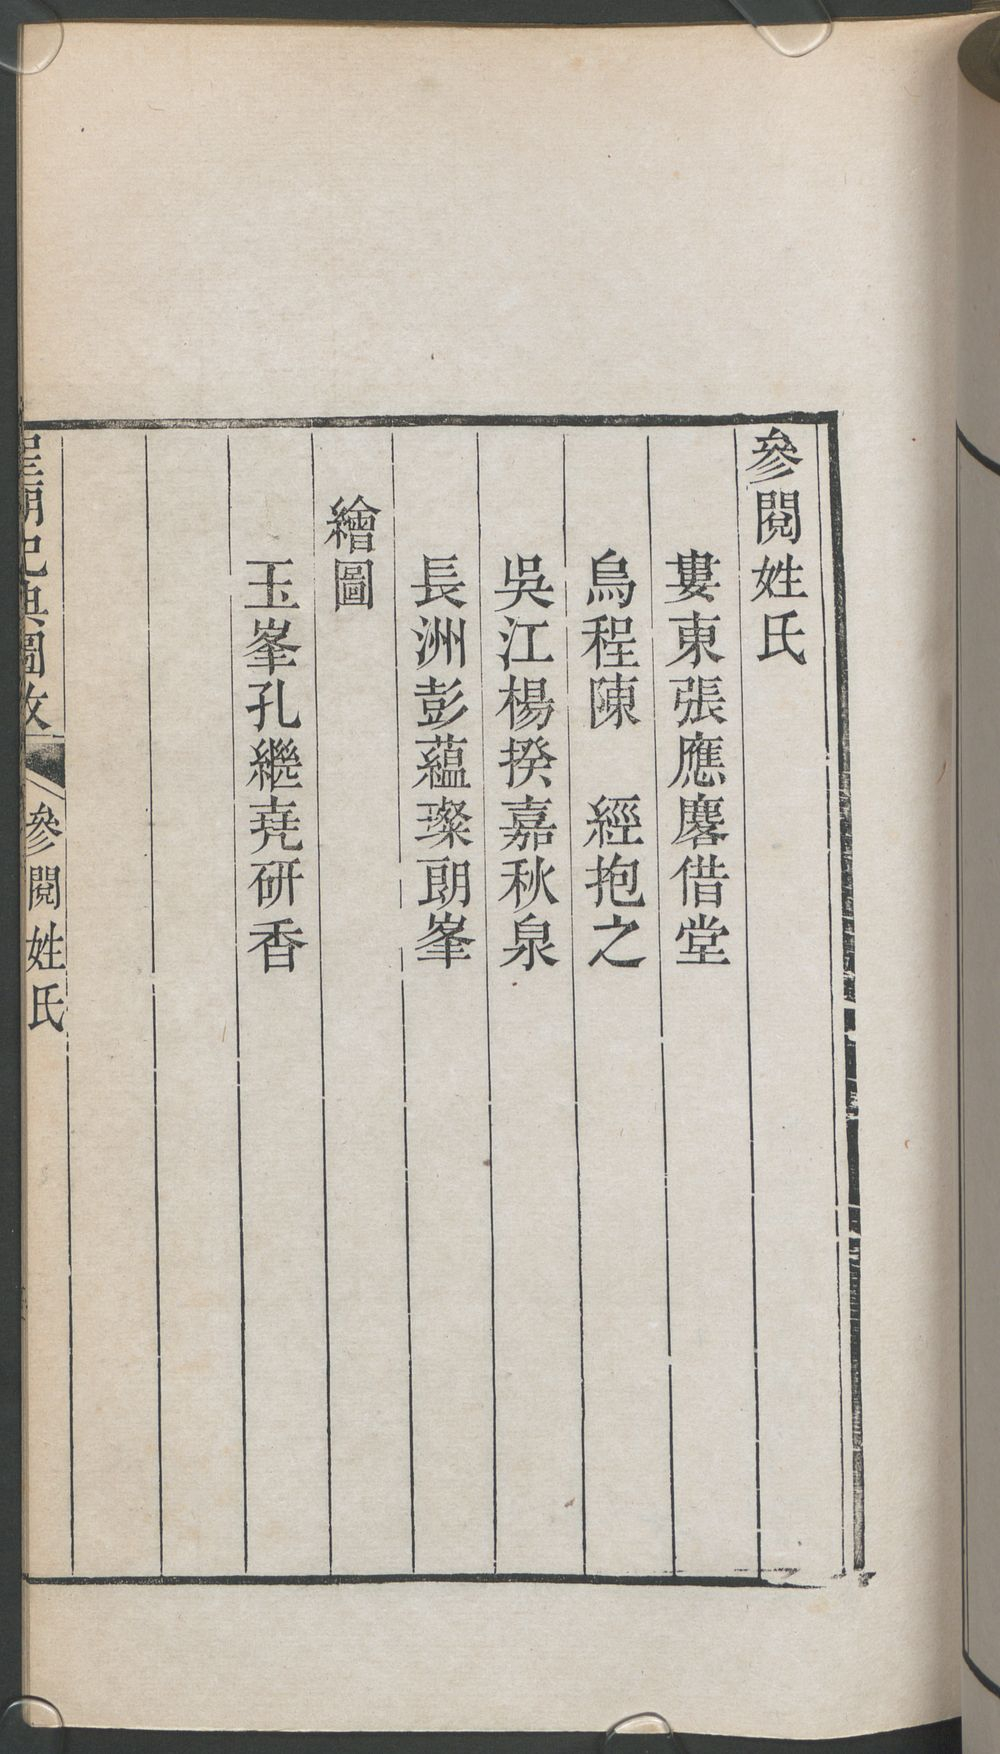 參閱姓氏
婁東張應麐借堂
烏程陳　經抱之
吳江楊揆嘉秋泉
長洲彭蘊璨朗峯
繪圖
玉峯孔繼堯研香
聖廟祀典圖攷
參閱姓氏